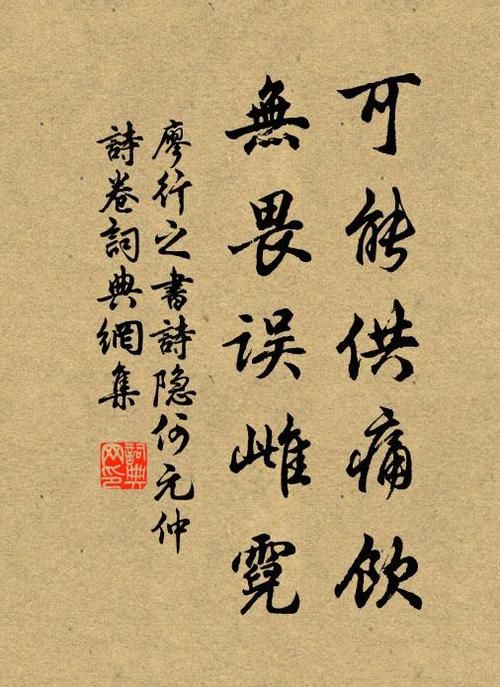 可能供痛飲
無畏误雌霓
廖行之書詩隐何元仲
詩卷詞典網集
詞典
网印